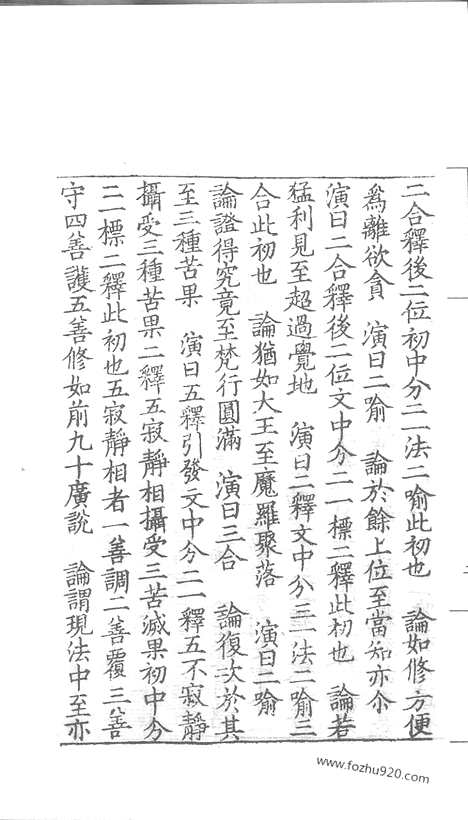 二合釋後二位初中分二一法二喻此初也　論如修方便
爲離欲貪　演曰二喻　論於餘上位至當知亦尒
演曰二合釋後二位文中分二一標二釋此初也　論若
猛利見至超過覺地　演曰二釋文中分三一法二喻三
合此初也　論猶如大王至魔羅聚落　演曰二喻
論證得究竟至梵行圓滿　演曰三合　論復次於其
至三種苦果　演曰五釋引發文中分二一釋五不寂靜
攝受三種苦果二釋五寂靜相攝受三苦滅果初中分
二一標二釋此初也五寂靜相者一善調二善覆三善
守四善護五善修如前九十廣說　論謂現法中至亦
www.fozhu920.com